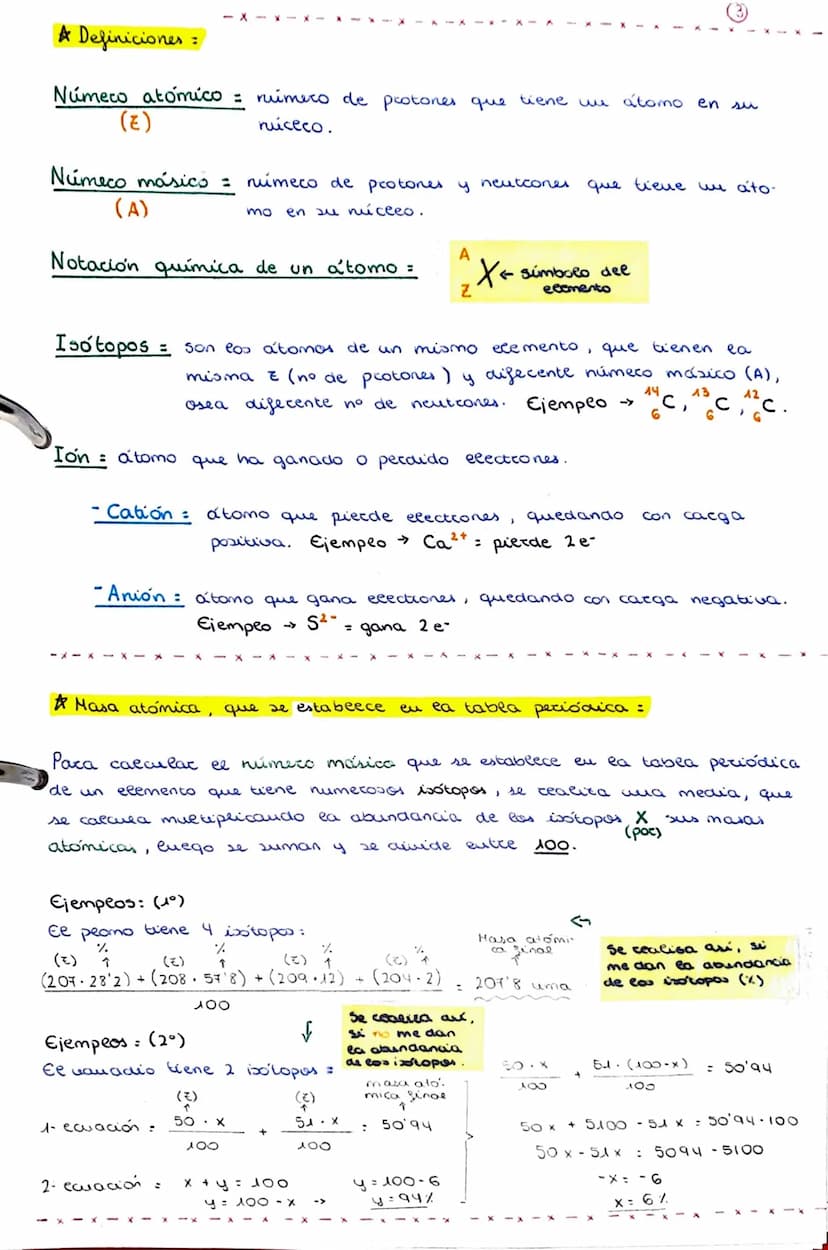 3
☆ Definiciones =
Número atómico = número de protones que tiene un átomo en su
(Z) núcleo.
Número másico = número de protones y neutrones que tiene un áto-
(A) mo en su núcleo.
Notación química de un átomo =
A
Z X ← símbolo del
elemento
Isótopos = son los átomos de un mismo elemento, que tienen la
misma Z (nº de protones) y diferente número másico (A),
osea diferente nº de neutrones. Ejemplo → ¹⁴₆C, ¹³₆C, ¹²₆C.
Ión = átomo que ha ganado o perdido electrones.
- Catión = átomo que pierde electrones, quedando con carga
positiva. Ejemplo → Ca²⁺ = pierde 2e⁻
- Anión = átomo que gana electrones, quedando con carga negativa.
Ejemplo → S²⁻ = gana 2e⁻
☆ Masa atómica, que se establece en la tabla periódica =
Para calcular el número másico que se establece en la tabla periódica
de un elemento que tiene numerosos isótopos, se realiza una media, que
se calcula multiplicando la abundancia de los isótopos X sus masas
(por)
atómicas, luego se suman y se divide entre 100.
Ejemplos: (1º)
El plomo tiene 4 isótopos:
(Z) % ↑ (Z) % ↑ (Z) % ↑ (Z) % ↑
(207·28'2) + (208·57'8) + (209·12) + (204·2) = 207'8 uma
100
Masa atómi-
ca final
←
Se realisa así, si
me dan la abundancia
de los isótopos (%)
Ejemplos = (2º)
↓
Se realiza así,
si no me dan
la abundancia
de los isótopos.
El vanadio tiene 2 isótopos =
(Z) ↑ (Z) ↑ masa ató-
mica final ↑
1- ecuación = 50·x/100 + 51·x/100 = 50'94
2- ecuación = x + y = 100
y = 100 - x → y = 100 - 6
y = 94%
50·x/100 + 51·(100-x)/100 = 50'94
50x + 5100 - 51x = 50'94·100
50x - 51x = 5094 - 5100
-x = -6
x = 6%